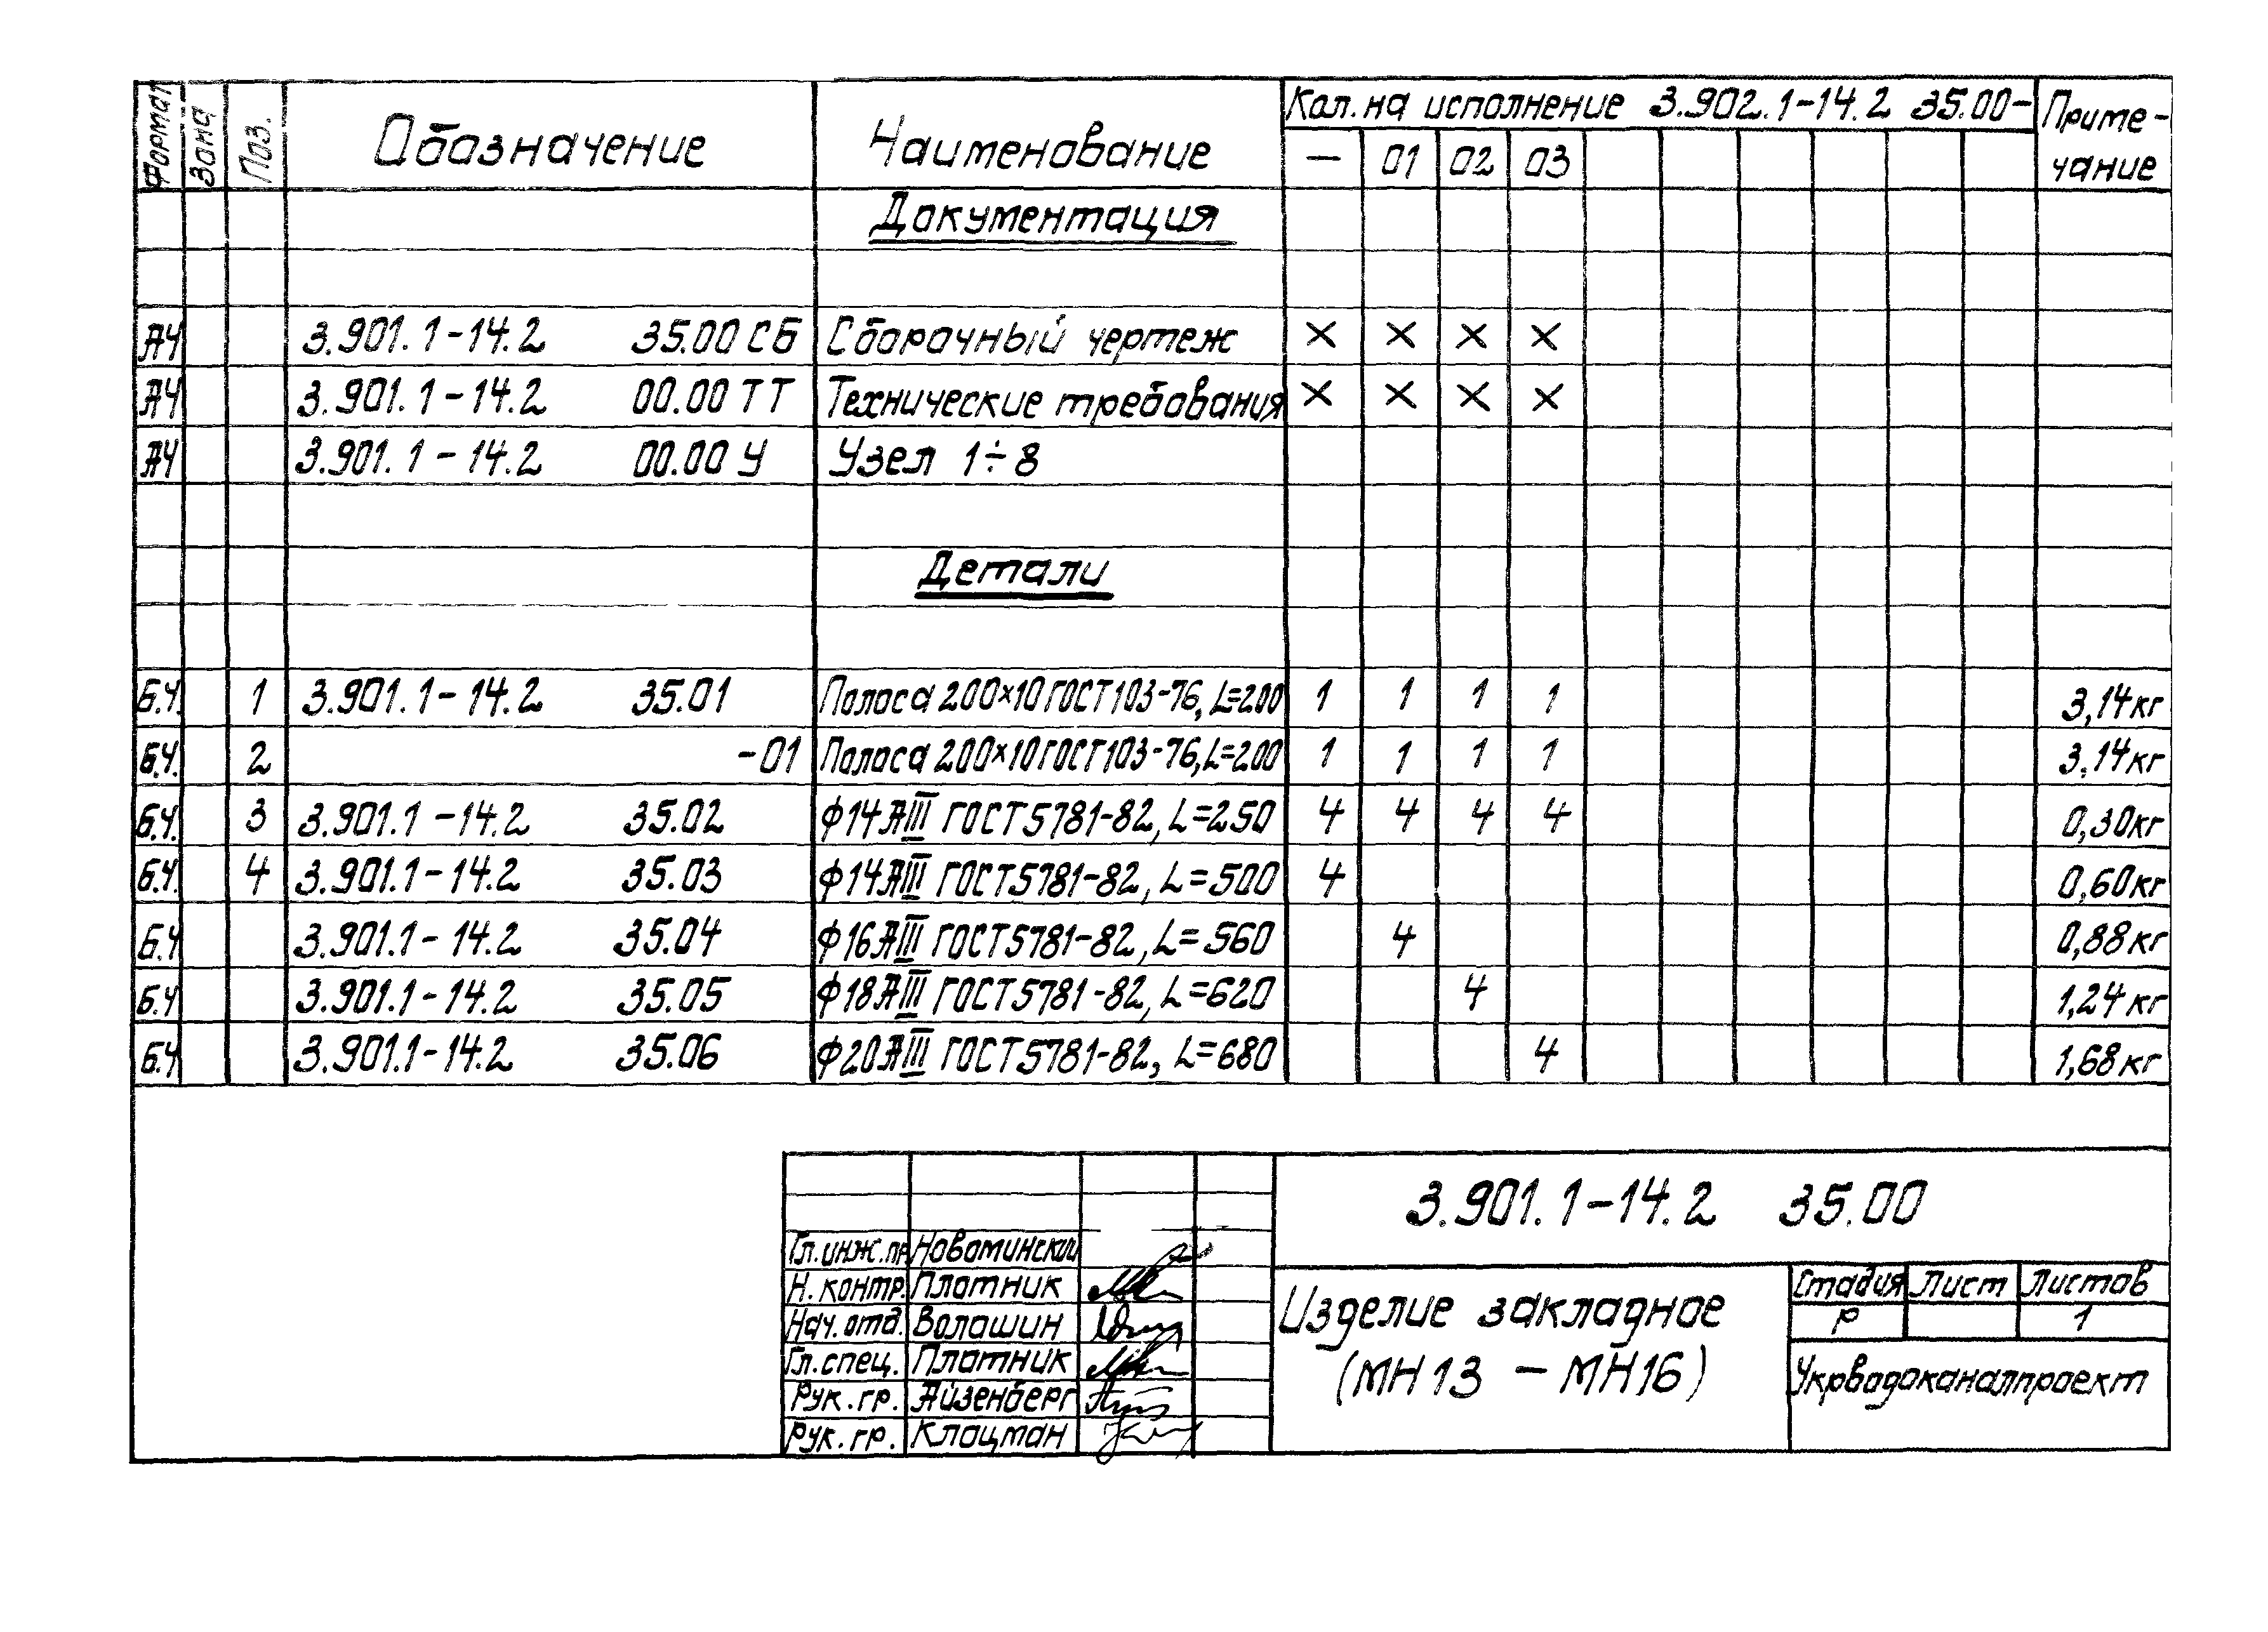 Формат Зона Поз. Обозначение Наименование Кол. на исполнение 3.902.1-14.2 35.00- Приме-
— 01 02 03 чание
Документация
А4 3.901.1-14.2 35.00 СБ Сборочный чертеж × × × ×
А4 3.901.1-14.2 00.00 ТТ Технические требования × × × ×
А4 3.901.1-14.2 00.00 У Узел 1÷8
Детали
Б.Ч. 1 3.901.1-14.2 35.01 Полоса 200×10 ГОСТ 103-76, L=200 1 1 1 1 3,14кг
Б.Ч. 2 -01 Полоса 200×10 ГОСТ 103-76, L=200 1 1 1 1 3,14кг
Б.Ч. 3 3.901.1-14.2 35.02 Ф14АIII ГОСТ 5781-82, L=250 4 4 4 4 0,30кг
Б.Ч. 4 3.901.1-14.2 35.03 Ф14АIII ГОСТ 5781-82, L=500 4 0,60кг
Б.Ч 3.901.1-14.2 35.04 Ф16АIII ГОСТ 5781-82, L=560 4 0,88кг
Б.Ч 3.901.1-14.2 35.05 Ф18АIII ГОСТ 5781-82, L=620 4 1,24кг
Б.Ч 3.901.1-14.2 35.06 Ф20АIII ГОСТ 5781-82, L=680 4 1,68кг
3.901.1-14.2 35.00
Гл.инж.пр Новоминский
Н.контр. Плотник
Нач.отд. Волошин
Гл.спец. Плотник
Рук.гр. Айзенберг
Рук.гр. Клоцман
Изделие закладное
(МН13 - МН16)
Стадия Лист Листов
Р 1
Укрводоканалпроект